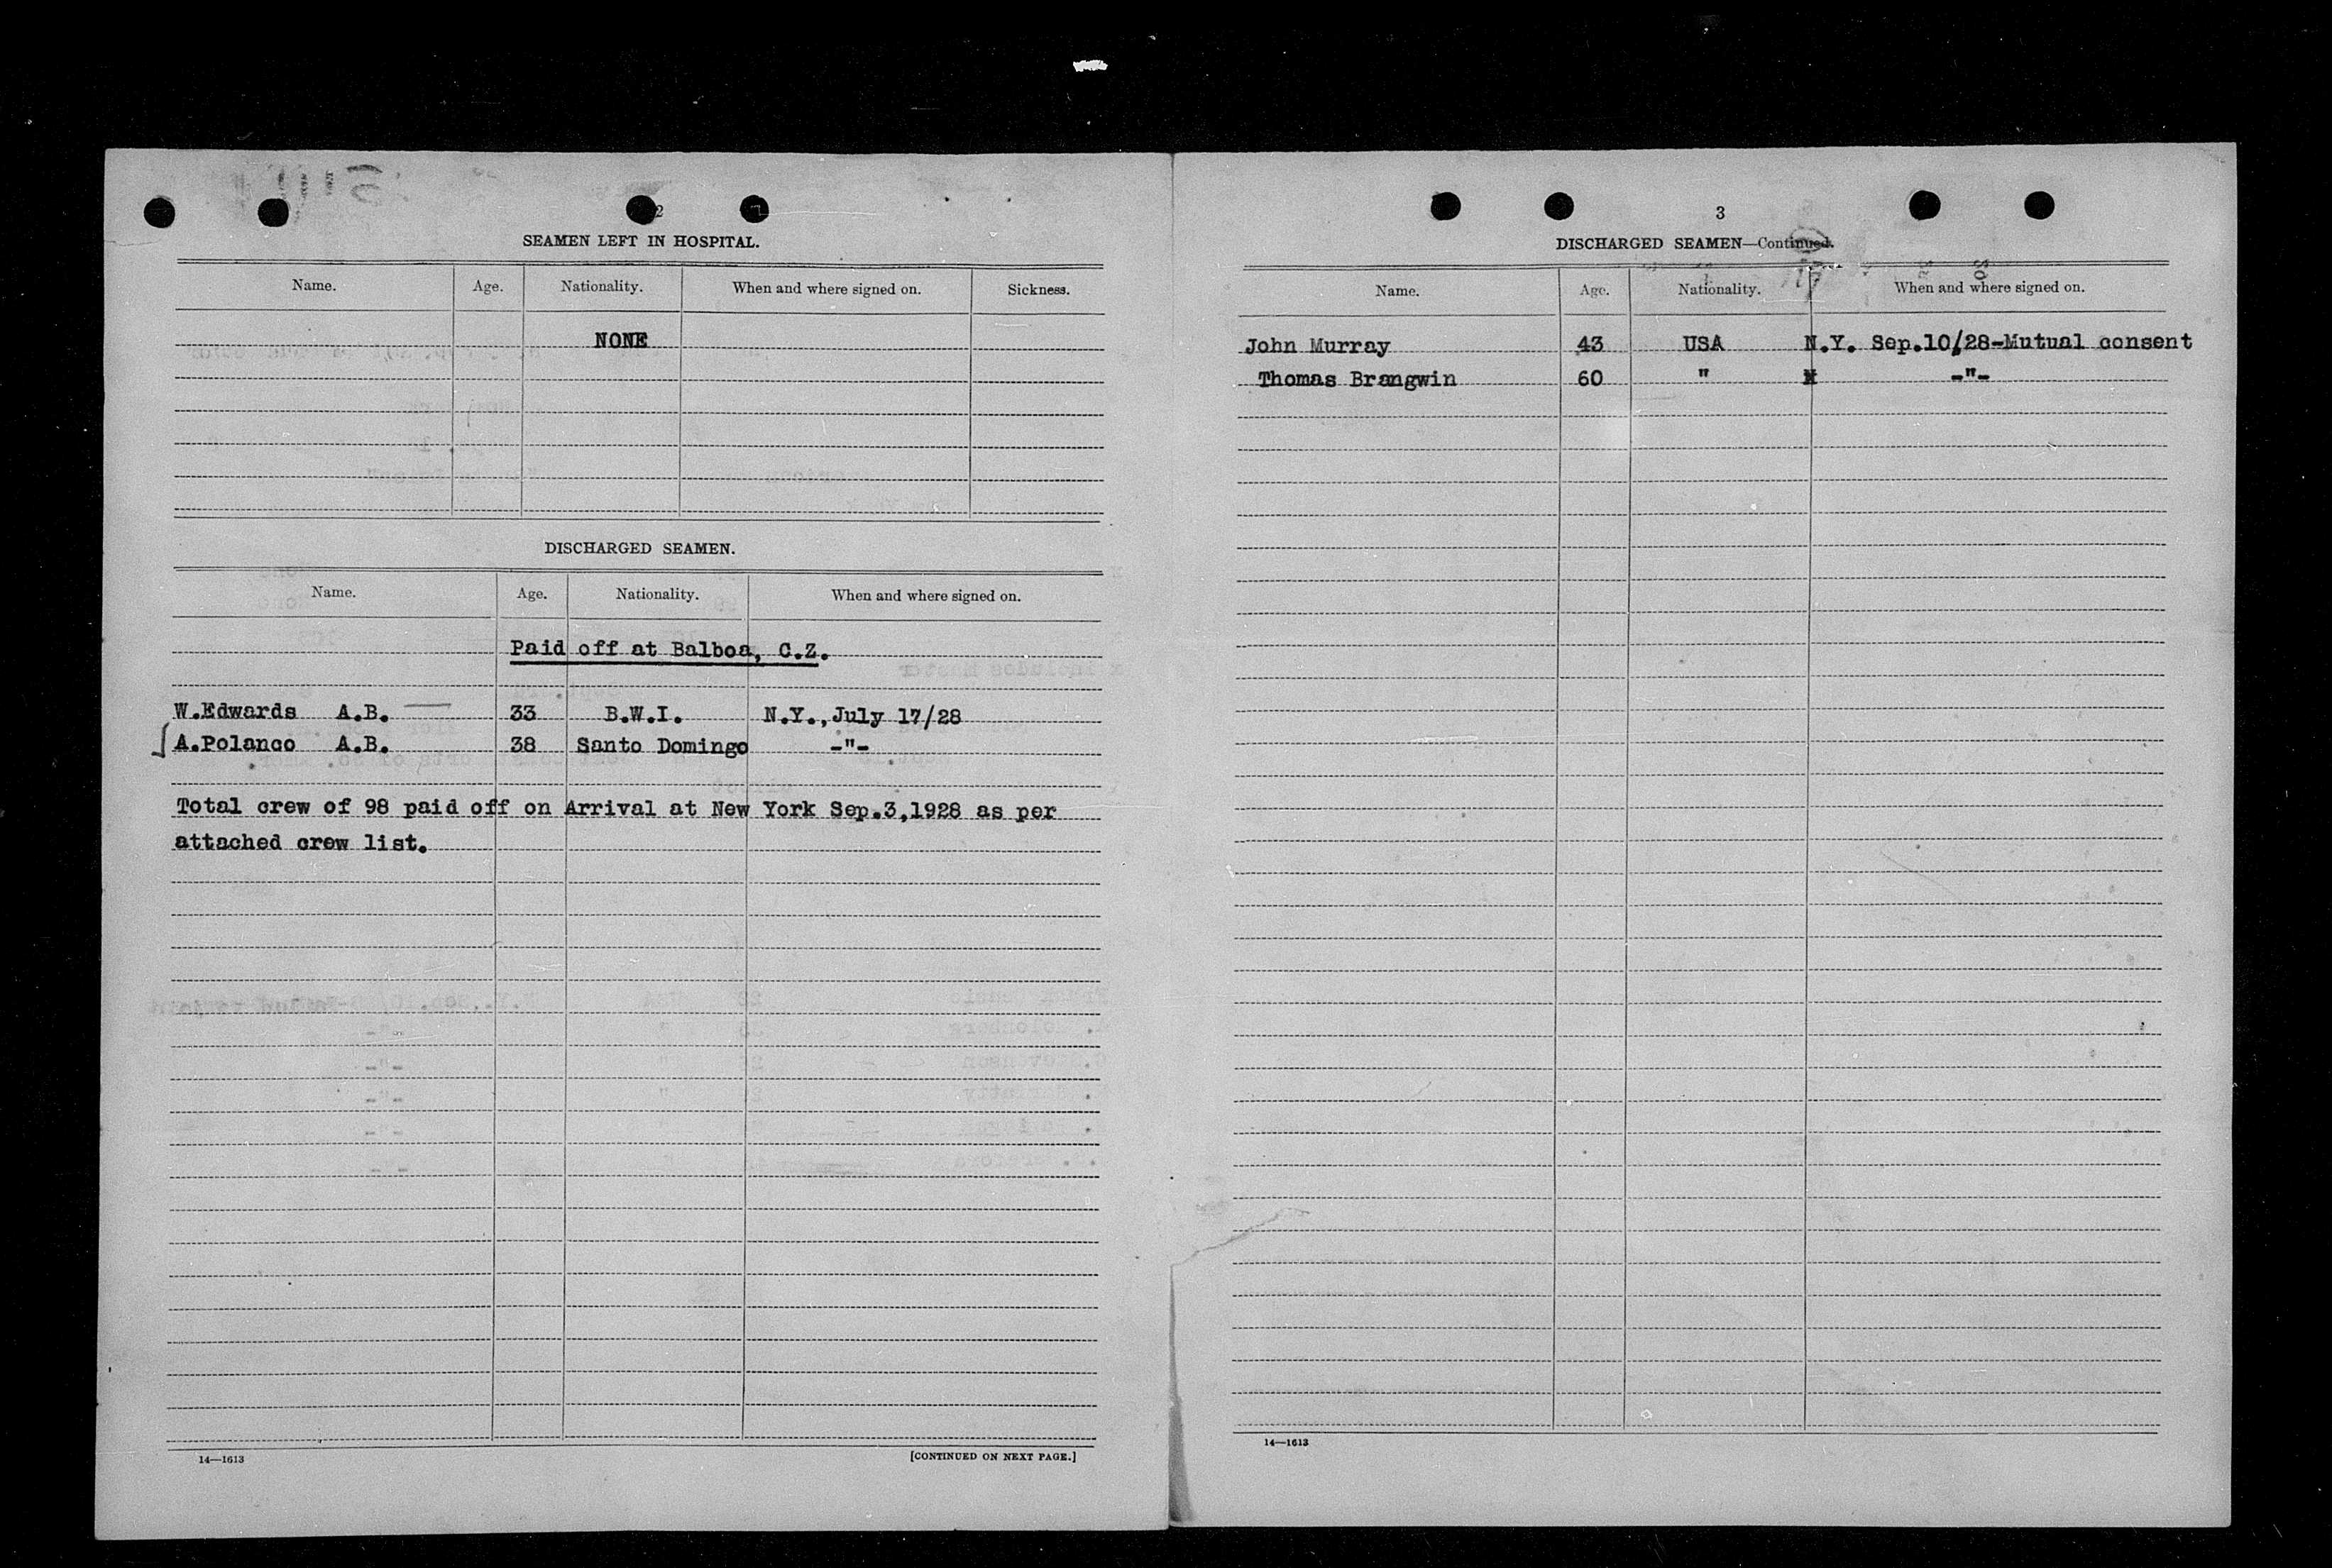 2
SEAMEN LEFT IN HOSPITAL.
Name. Age. Nationality. When and where signed on. Sickness.
NONE
DISCHARGED SEAMEN.
Name. Age. Nationality. When and where signed on.
Paid off at Balboa, C.Z.
W.Edwards A.B. 33 B.W.I. N.Y.,July 17/28
A.Polanco A.B. 38 Santo Domingo -"-
Total crew of 98 paid off on Arrival at New York Sep.3,1928 as per
attached crew list.
14—1613 [CONTINUED ON NEXT PAGE.]
3
DISCHARGED SEAMEN—Continued.
Name. Age. Nationality. When and where signed on.
John Murray 43 USA N.Y. Sep.10/28-Mutual consent
Thomas Brangwin 60 " -"-
14—1613